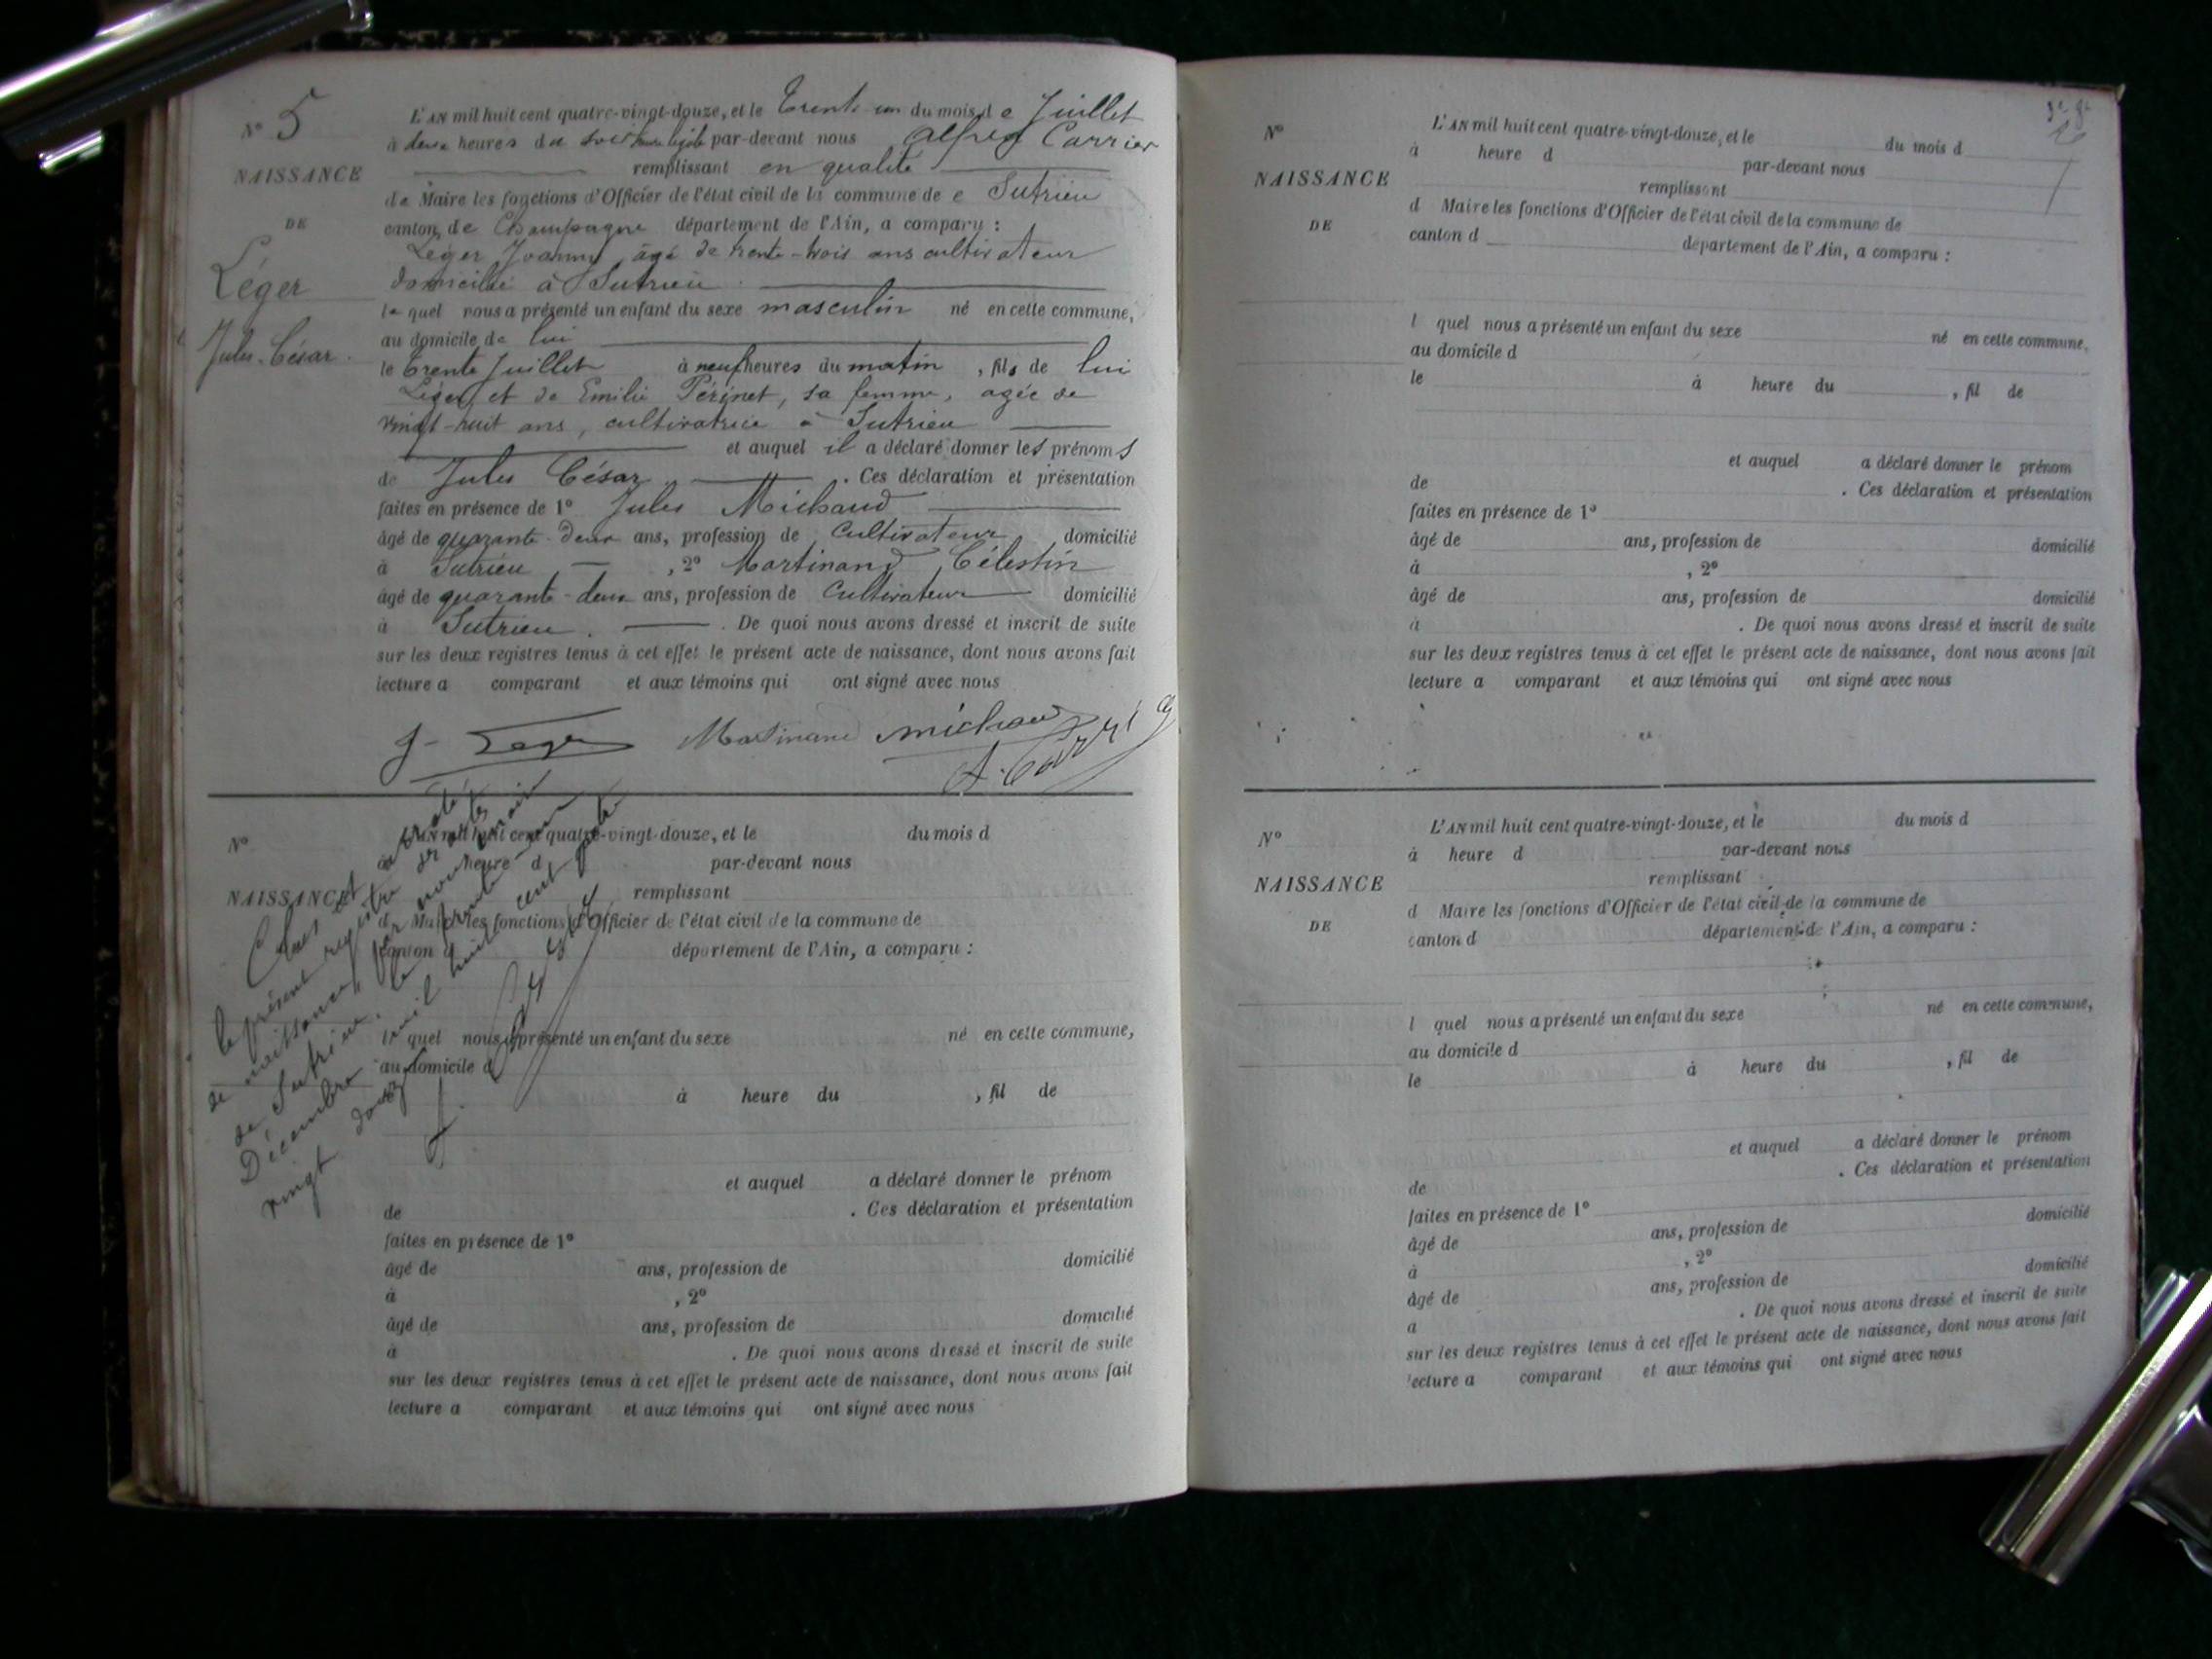 N° 5
NAISSANCE
DE
Léger
Jules-César.
L'AN mil huit cent quatre-vingt-douze, et le Trente un du mois de Juillet
à deux heures du soir heure légale par-devant nous Alfred Carrier
remplissant en qualité
de Maire les fonctions d'Officier de l'état civil de la commune de Sutrieu
canton de Champagne département de l'Ain, a comparu :
Léger Joanny, âgé de trente-trois ans cultivateur
domicilié à Sutrieu.
lequel nous a présenté un enfant du sexe masculin né en cette commune,
au domicile de lui
le trente Juillet à neuf heures du matin, fils de lui
Léger et de Emilie Périnet, sa femme, agée de
vingt-huit ans, cultivatrice à Sutrieu
et auquel il a déclaré donner les prénoms
de Jules César. Ces déclaration et présentation
faites en présence de 1° Jules Michaud
âgé de quarante-deux ans, profession de Cultivateur domicilié
à Sutrieu, 2° Martinand Célestin
âgé de quarante-deux ans, profession de Cultivateur domicilié
à Sutrieu. De quoi nous avons dressé et inscrit de suite
sur les deux registres tenus à cet effet le présent acte de naissance, dont nous avons fait
lecture a comparant et aux témoins qui ont signé avec nous
J. Léger Martinand Michaud
A. Carrier
N°
NAISSANCE
L'AN mil huit cent quatre-vingt-douze, et le du mois d
à heure d par-devant nous
remplissant
d Maire les fonctions d'Officier de l'état civil de la commune de
canton d département de l'Ain, a comparu :
l quel nous a présenté un enfant du sexe né en cette commune,
au domicile d
à heure du , fil de
et auquel a déclaré donner le prénom
de . Ces déclaration et présentation
faites en présence de 1°
âgé de ans, profession de domicilié
à , 2°
âgé de ans, profession de domicilié
à . De quoi nous avons dressé et inscrit de suite
sur les deux registres tenus à cet effet le présent acte de naissance, dont nous avons fait
lecture a comparant et aux témoins qui ont signé avec nous
Clos et arrêté
le présent registre des actes
de naissance, par nous maire
de Sutrieu, le trente-un
Décembre mil huit cent quatre
vingt douze
N°
NAISSANCE
DE
L'AN mil huit cent quatre-vingt-douze, et le du mois d
à heure d par-devant nous
remplissant
d Maire les fonctions d'Officier de l'état civil de la commune de
canton d département de l'Ain, a comparu :
l quel nous a présenté un enfant du sexe né en cette commune,
au domicile d
le à heure du , fil de
et auquel a déclaré donner le prénom
de . Ces déclaration et présentation
faites en présence de 1°
âgé de ans, profession de domicilié
à , 2°
âgé de ans, profession de domicilié
à . De quoi nous avons dressé et inscrit de suite
sur les deux registres tenus à cet effet le présent acte de naissance, dont nous avons fait
lecture a comparant et aux témoins qui ont signé avec nous
N°
NAISSANCE
DE
L'AN mil huit cent quatre-vingt-douze, et le du mois d
à heure d par-devant nous
remplissant
d Maire les fonctions d'Officier de l'état civil de la commune de
canton d département de l'Ain, a comparu :
l quel nous a présenté un enfant du sexe né en cette commune,
au domicile d
le à heure du , fil de
et auquel a déclaré donner le prénom
de . Ces déclaration et présentation
faites en présence de 1°
âgé de ans, profession de domicilié
à , 2°
âgé de ans, profession de domicilié
a . De quoi nous avons dressé et inscrit de suite
sur les deux registres tenus à cet effet le présent acte de naissance, dont nous avons fait
lecture a comparant et aux témoins qui ont signé avec nous